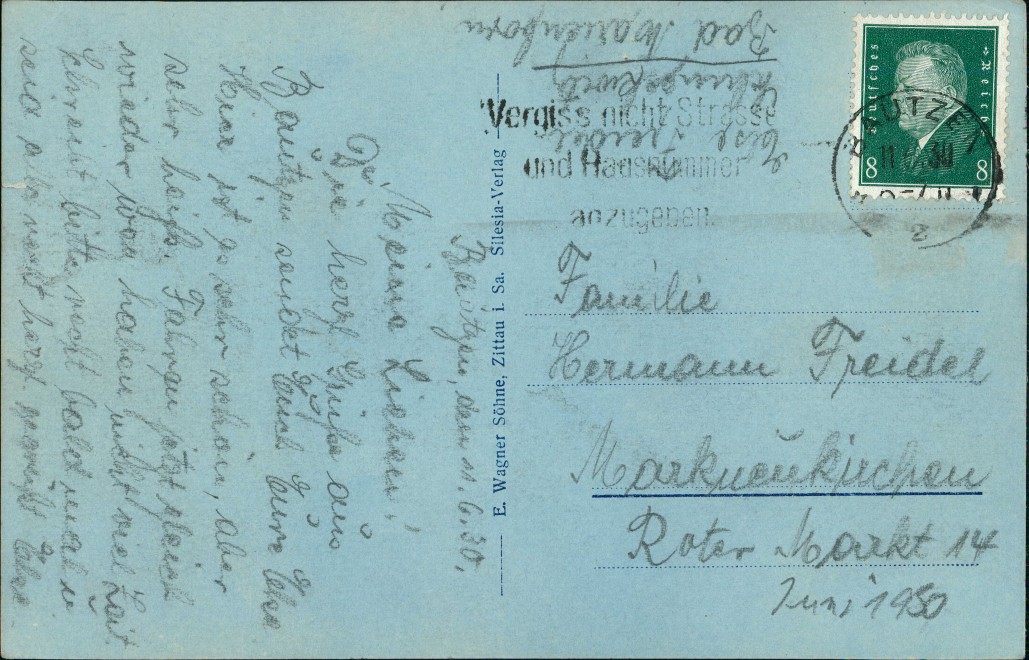 Bautzen, den 11.6.30.
Meine Lieben!
Die herzl Grüße aus
Bautzen sendet Euch Eure Elsa
Hier ist es sehr schön, aber
sehr heiß. Fahren jetzt gleich
wieder haben nicht viel Zeit
Schreibt bitte recht bald mal u.
seid alle recht herzl. gegrüßt Elsa
E. Wagner Söhne, Zittau i. Sa. Silesia-Verlag
Bad Marienborn
Freidel
Vergiss nicht Strasse
und Hausnummer
anzugeben.
Deutsches Reich
8 8
BAUTZEN
11.6.30
2
Familie
Hermann Freidel
Markneukirchen
Roter Markt 14
Juni 1930